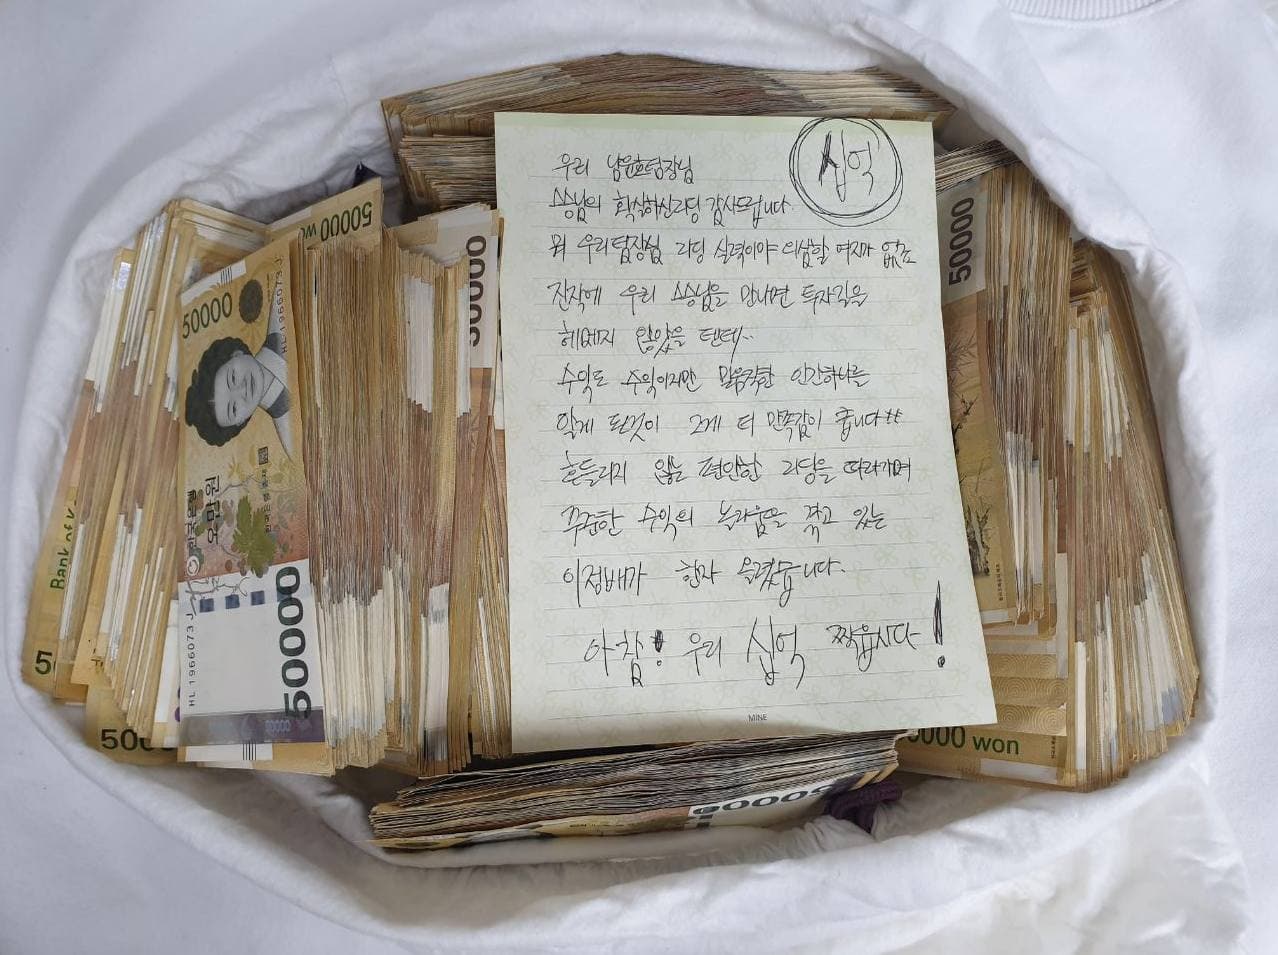 십억
우리 남윤호팀장님
쓰승님의 확실하신리딩 감사드립니다.
뭐 우리팀장님 리딩 실력이야 의심할 여지가 없고
진작에 우리 쓰승님을 만나면 투자길을
헤메지 않았을 텐데..
수익도 수익이지만 말음직한 인간하나를
알게 된것이 그게 더 만족감이 줍니다ㅠ
흔들리지 않는 편안한 리딩을 따라가며
꾸준한 수익의 놀라움을 겪고 있는
이점배가 한자 올렸습니다.
아참! 우리 십억 찍읍시다!
MINE
50000 won
50000
HL 1966073 J
한국은행
오만원
50000
HL 1966073 J
50000
50000
50000
Bank of
50000 won
50000